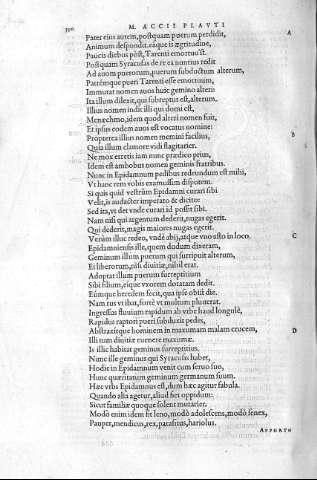 M. ACCII PLAVTI
A
Pater eius autem, postquam puerum perdidit,
Animum despondit. eaque is ægritudine,
Paucis diebus pòst, Tarenti emortuu'st.
Postquam Syracusas de re ea nontius redit
Ad auom puerorum, puerum subductum alterum,
Patrémque pueri Tarenti esse emortuum,
Immutat nomen auos huic gemino alteri
Ita illum dilexit, qui subreptus est, alterum.
Illius nomen indit illi qui domi est,
Menæchmo, idem quod alteri nomen fuit,
Et ipsus eodem auos est vocatus nomine:
Propterea illius nomen memini facilius,
B
Quia illum clamore vidi flagitarier.
Ne mox erretis iam nunc prædico prius,
Idem est ambobus nomen geminis fratribus.
Nunc in Epidamnum pedibus redeundum est mihi,
Vt hanc rem vobis examussim disputem.
Si quis quid vestrûm Epidamni curari sibi
Velit, is audacter imperato & dicito:
Sed ita, vt det vnde curari id possit sibi.
Nam nisi qui argentum dederit, nugas egerit.
Qui dederit, magis maiores nugas egerit.
Verùm illuc redeo, vnde abij, atque vno asto in loco.
C
Epidamniensis iste, quem dudum dixeram,
Geminum illum puerum qui surripuit alterum,
Ei liberorum, nisi diuitiæ, nihil erat.
Adoptat illum puerum surreptitium
Sibi filium, eíque vxorem dotatam dedit.
Eúmque heredem fecit, quú ipse obiit die.
Nam rus vt ibat, fortè vt multum pluuerat.
Ingressus fluuium rapidum ab vrbe haud longulè,
Rapidus raptori pueri subduxit pedes,
Abstraxitque hominem in maxumam malam crucem,
D
Illi tum diuitiæ euenere maxumæ.
Is illic habitat geminus surreptitius.
Nunc ille geminus qui Syracusis habet,
Hodie in Epidamnum venit cum seruo suo,
Hunc quæritatum geminum germanum suum.
Hæc vrbs Epidamnus est, dum hæc agitur fabula.
Quando alia agetur, aliud fiet oppidum:
Sicut familiæ quoque solent mutarier.
Modò enim idem fit leno, modò adolescens, modò senex,
Pauper, mendicus, rex, parasitus, hariolus.
APPERTH